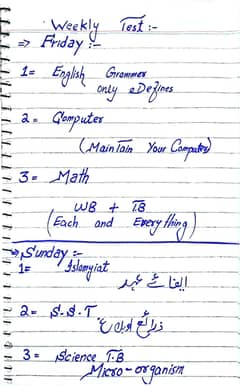 Weekly Test :-
=> Friday :-
1= English Grammer
only Defines
2= Computer
(MainTain Your Computer)
3= Math
WB + T.B
(Each and EveryThing)
=> Sunday :-
1= Islamyiat
ایفائے عہد
2= S.S.T
ذرائع ابلاغ
3= Science T.B
Micro-organism